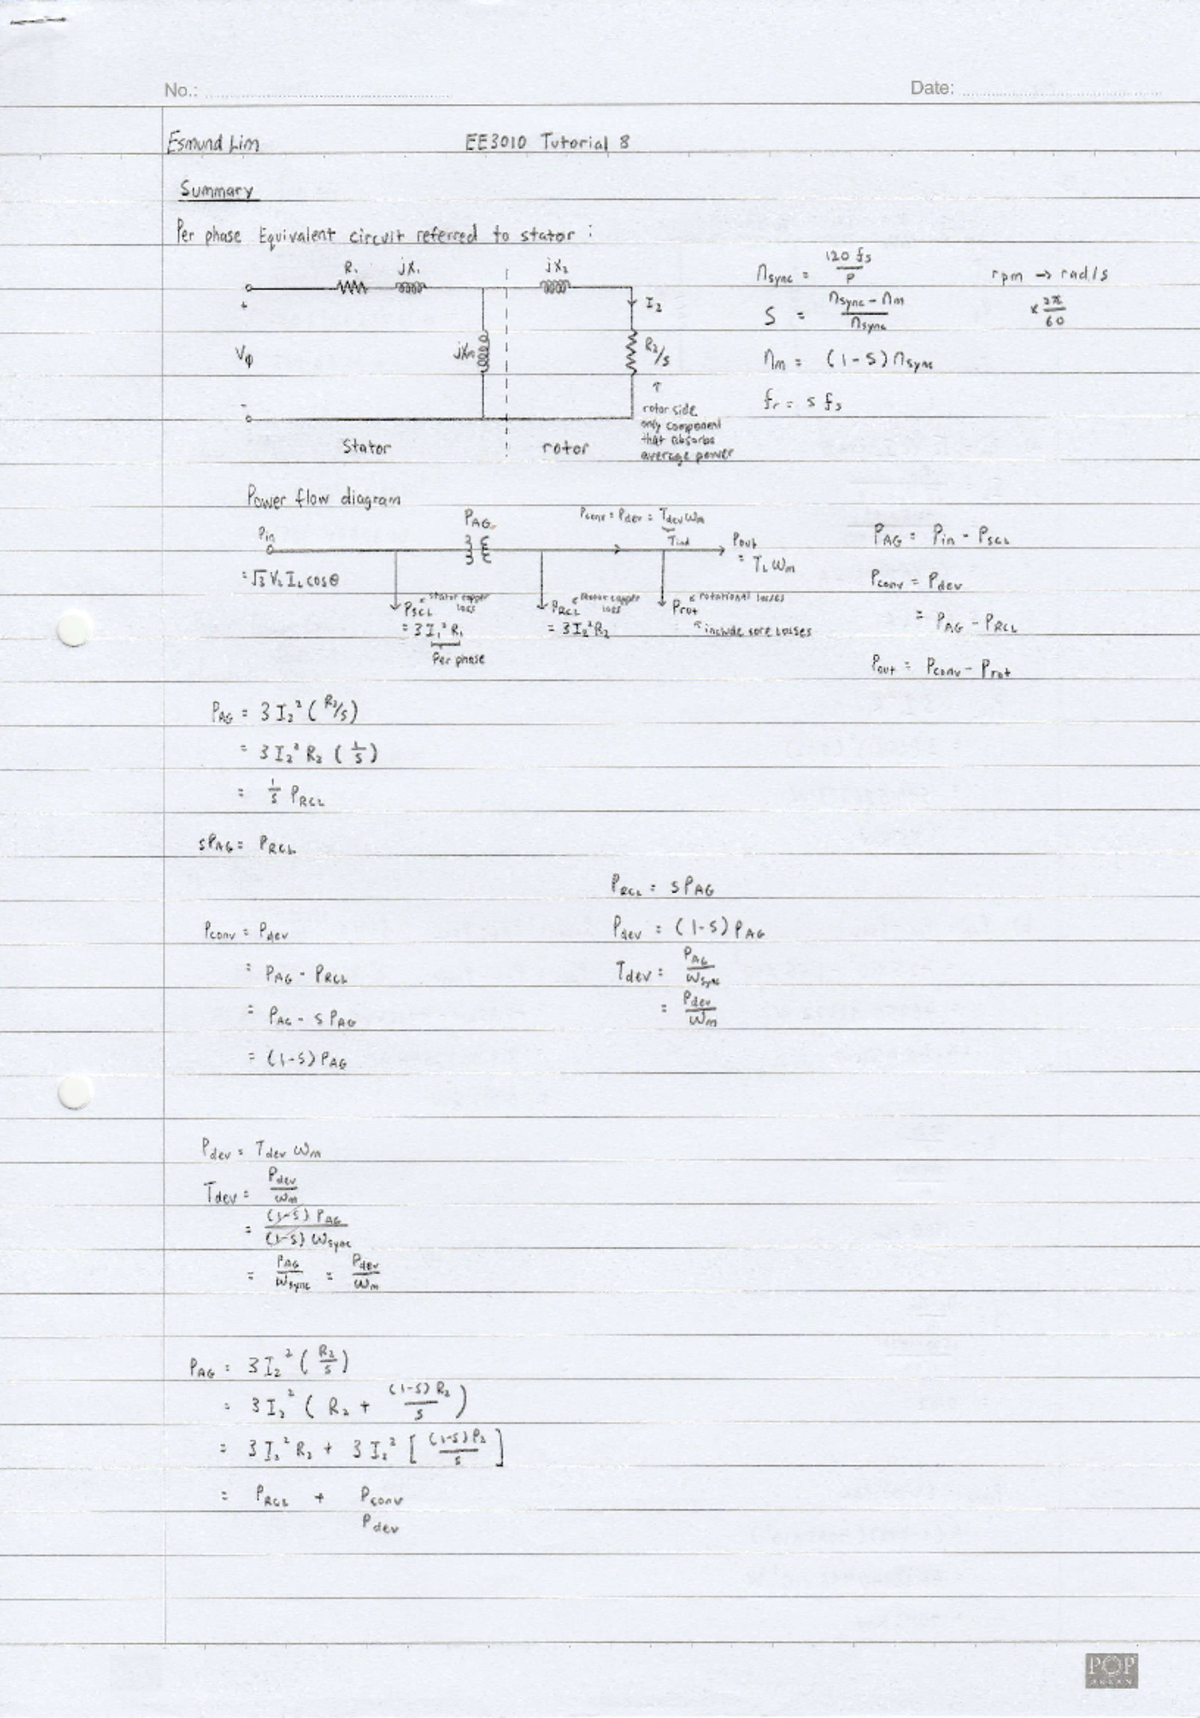 No.:
Date:
Esmund Lim
EE3010 Tutorial 8
Summary
Per phase Equivalent circuit referred to stator :
R₁ jX₁ jX₂
+
Vφ
-
jXm
I₂
R₂/s
↑
rotor side
only component
that absorbs
average power
Stator
rotor
n_sync = 120 fs / P
rpm → rad/s
× 2π/60
S = (n_sync - n_m) / n_sync
n_m = (1-s) n_sync
fr = s fs
Power flow diagram
Pin
= √3 VL IL cosθ
PAG
Pconv = Pdev = Tdev ωm
Tind
Pout
= TL ωm
PSCL ← stator copper loss
= 3 I₁² R₁
Per phase
PRCL ← stator copper loss
= 3 I₂² R₂
Prot ← rotational losses
↖ include core losses
PAG = Pin - PSCL
Pconv = Pdev
= PAG - PRCL
Pout = Pconv - Prot
PAG = 3 I₂² (R₂/s)
= 3 I₂² R₂ (1/s)
= 1/s PRCL
sPAG = PRCL
Pconv = Pdev
= PAG - PRCL
= PAG - s PAG
= (1-s) PAG
PRCL = s PAG
Pdev = (1-s) PAG
Tdev = PAG / ωsync
= Pdev / ωm
Pdev = Tdev ωm
Tdev = Pdev / ωm
= (1-s) PAG / (1-s) ωsync
= PAG / ωsync = Pdev / ωm
PAG = 3 I₂² (R₂/s)
= 3 I₂² ( R₂ + (1-s) R₂ / s )
= 3 I₂² R₂ + 3 I₂² [ (1-s) R₂ / s ]
= PRCL + Pconv
Pdev
POP